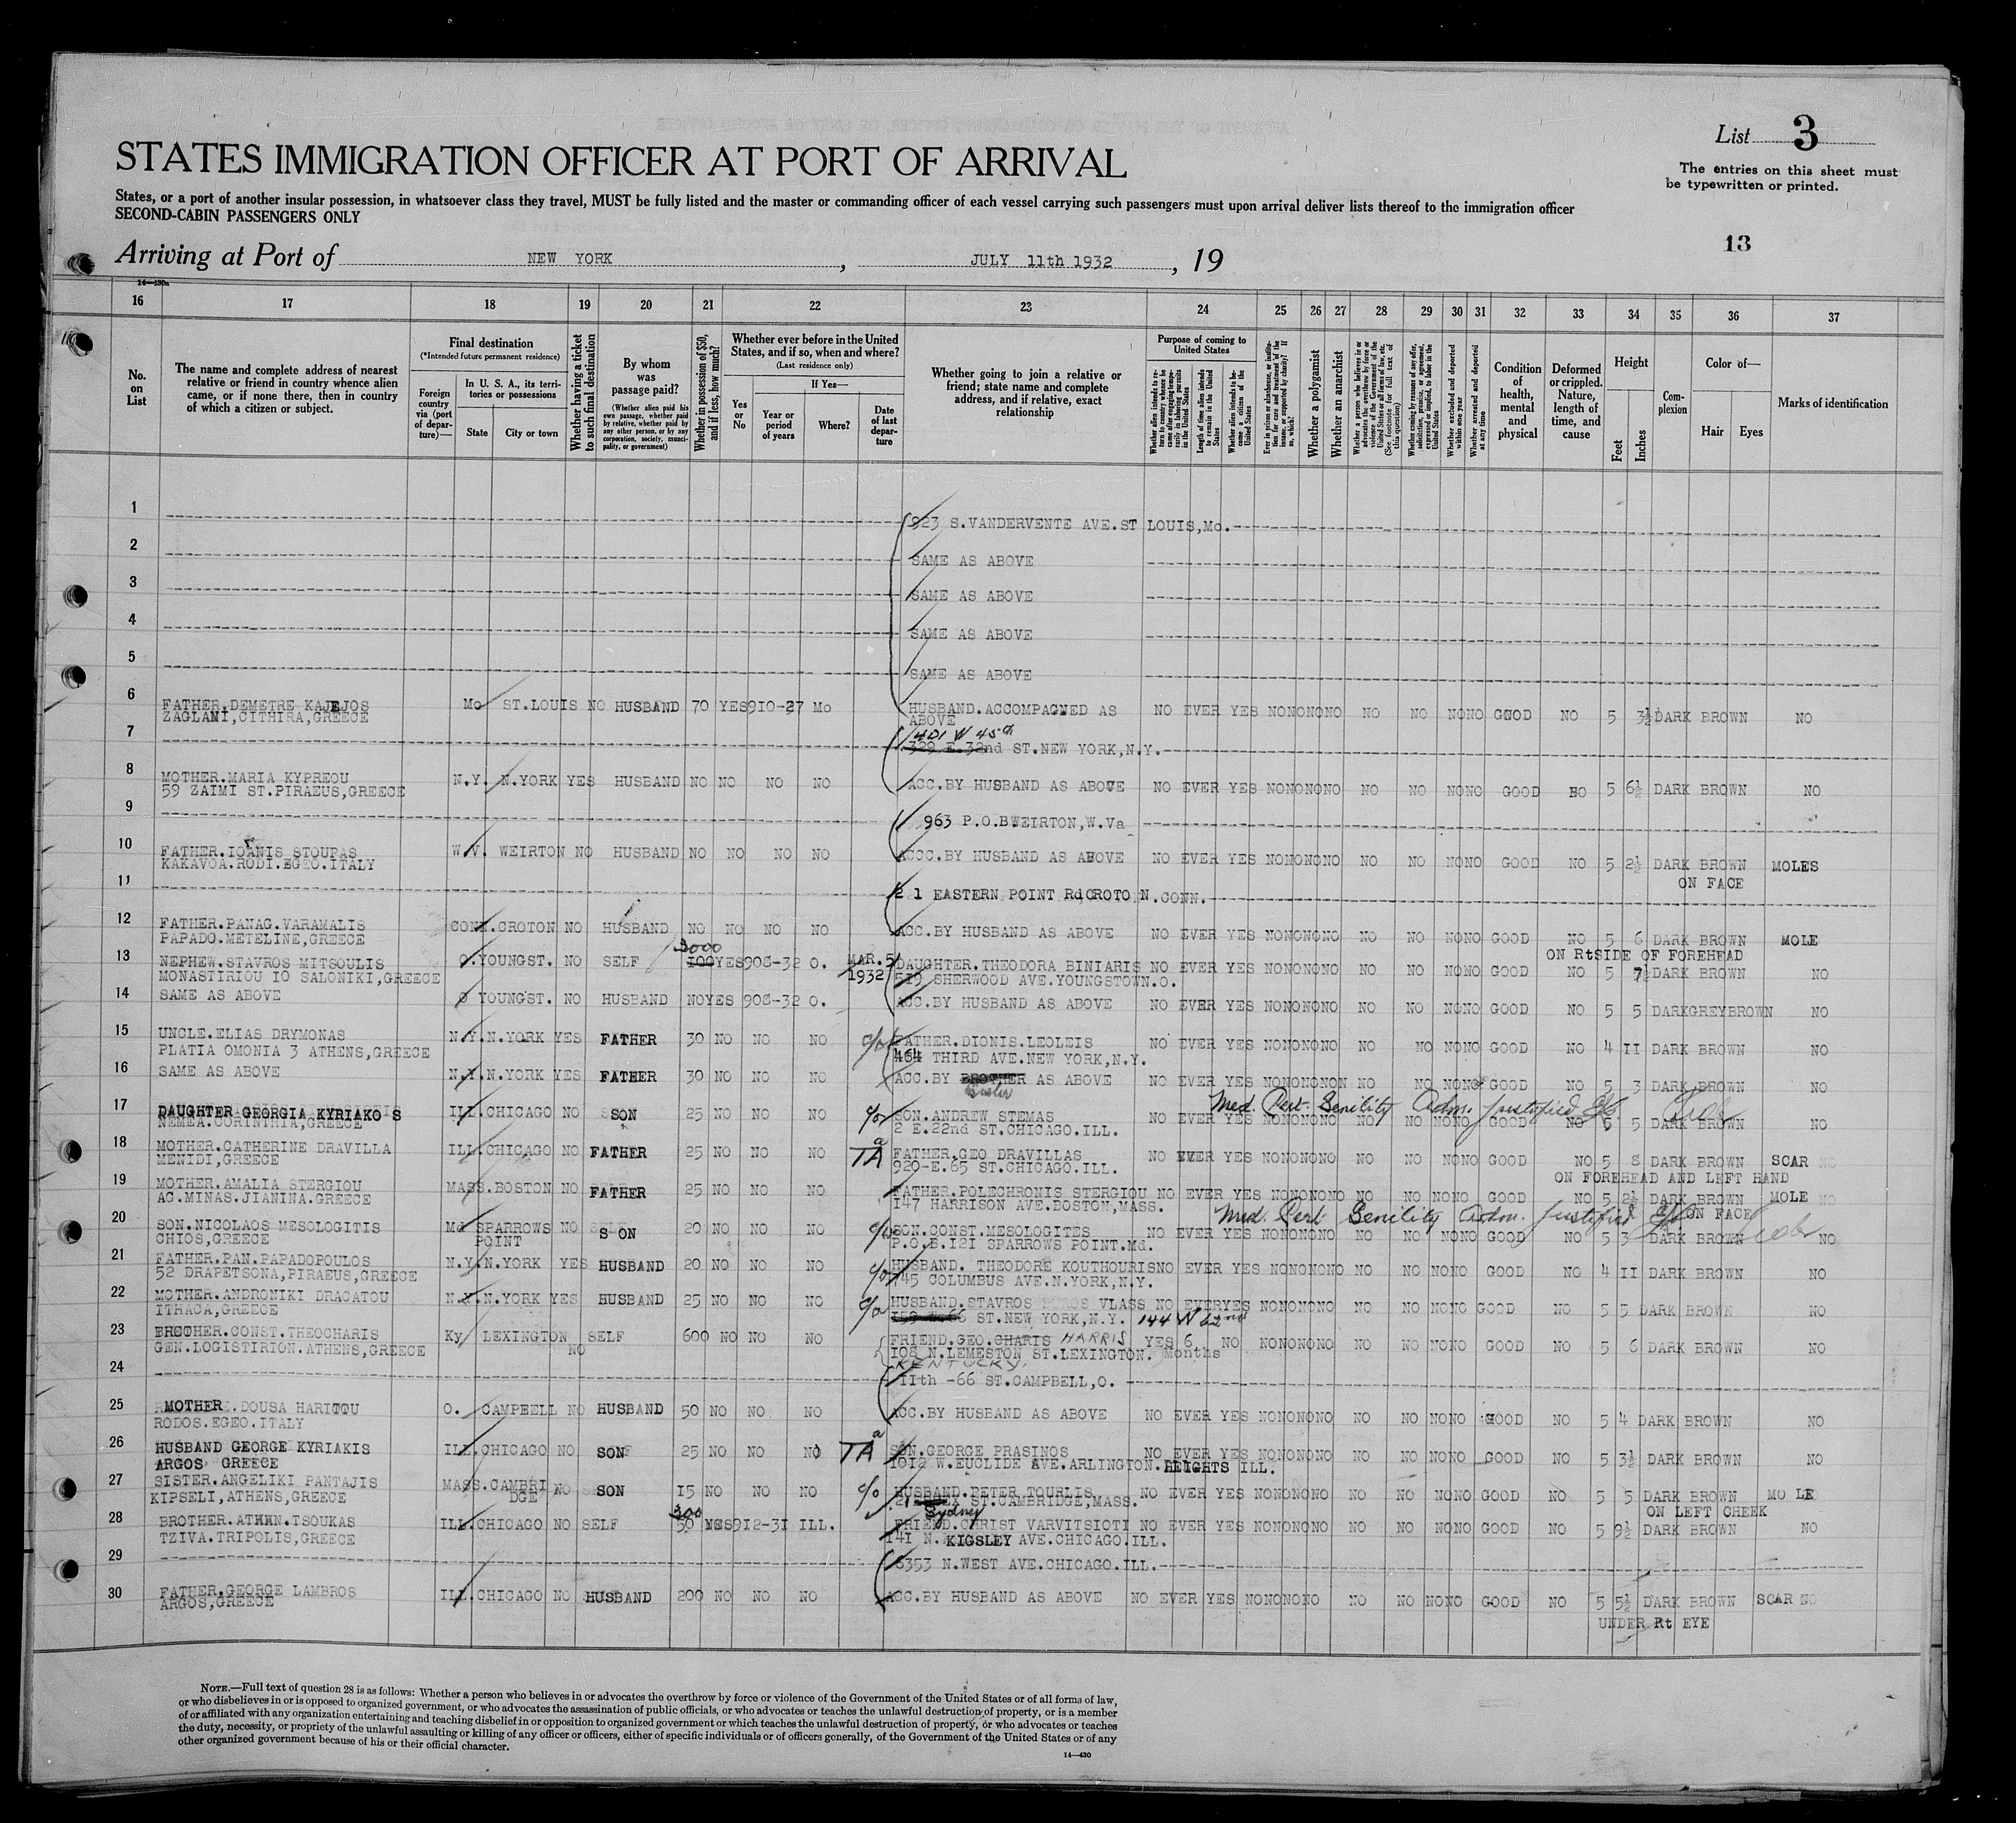 List 3
The entries on this sheet must
be typewritten or printed.
STATES IMMIGRATION OFFICER AT PORT OF ARRIVAL
States, or a port of another insular possession, in whatsoever class they travel, MUST be fully listed and the master or commanding officer of each vessel carrying such passengers must upon arrival deliver lists thereof to the immigration officer
SECOND-CABIN PASSENGERS ONLY
13
Arriving at Port of NEW YORK, JULY 11th 1932, 19
16 17 18 19 20 21 22 23 24 25 26 27 28 29 30 31 32 33 34 35 36 37
No. on List
The name and complete address of nearest relative or friend in country whence alien came, or if none there, then in country of which a citizen or subject.
Final destination
(*Intended future permanent residence)
Foreign country via (port of departure)—
In U. S. A., its territories or possessions
State
City or town
Whether having a ticket to such final destination
By whom was passage paid?
(Whether alien paid his own passage, whether paid by relative, whether paid by any other person, or by any corporation, society, municipality, or government)
Whether in possession of $50, and if less, how much?
Whether ever before in the United States, and if so, when and where?
(Last residence only)
If Yes—
Yes or No
Year or period of years
Where?
Date of last departure
Whether going to join a relative or friend; state name and complete address, and if relative, exact relationship
Purpose of coming to United States
Length of time alien intends to remain in the United States
Whether alien intends to become a citizen of the United States
Whether a polygamist
Whether an anarchist
Whether excluded and deported within one year
Whether arrested and deported at any time
Condition of health, mental and physical
Deformed or crippled. Nature, length of time, and cause
Height
Feet
Inches
Complexion
Color of—
Hair
Eyes
Marks of identification
1 923 S.VANDERVENTE AVE.ST LOUIS,Mo.
2 SAME AS ABOVE
3 SAME AS ABOVE
4 SAME AS ABOVE
5 SAME AS ABOVE
6 FATHER.DEMETRE Mo ST.LOUIS NO HUSBAND 70 YES 910-27 Mo HUSBAND.ACCOMPAGNED AS NO EVER YES NO NO NO NO NO NO NO NO GOOD NO 5 3½ DARK BROWN NO
ZAGLANI,CITHIRA,GREECE ABOVE
7 401 W 45th
329 E.32nd ST.NEW YORK,N.Y.
8 MOTHER.MARIA KYPREOU N.Y. N.YORK YES HUSBAND NO NO NO NO ACC.BY HUSBAND AS ABOVE NO EVER YES NO NO NO NO NO NO NO NO GOOD NO 5 6½ DARK BROWN NO
59 ZAIMI ST.PIRAEUS,GREECE
9 963 P.O.BWEIRTON,W.Va
10 FATHER.IOANIS STOUPAS W.V. WEIRTON NO HUSBAND NO NO NO NO ACCC.BY HUSBAND AS ABOVE NO EVER YES NO NO NO NO NO NO NO NO GOOD NO 5 2½ DARK BROWN MOLES
KAKAVOA.RODI.EGEO.ITALY ON FACE
11 2 1 EASTERN POINT Rd,CROTO N.CONN.
12 FATHER.PANAG.VARAMALIS CONN.CROTON NO HUSBAND NO NO NO NO ACC.BY HUSBAND AS ABOVE NO EVER YES NO NO NO NO NO NO NO NO GOOD NO 5 6 DARK BROWN MOLE
PAPADO.METELINE,GREECE ON Rt SIDE OF FOREHEAD
13 NEPHEW.STAVROS MITSOULIS O.YOUNGST. NO SELF 3000 100 YES 908-32 O. MAR.5/ 1932 DAUGHTER.THEODORA BINIARIS NO EVER YES NO NO NO NO NO NO NO NO GOOD NO 5 7½ DARK BROWN NO
MONASTIRIOU IO SALONIKI,GREECE 519 SHERWOOD AVE.YOUNGSTOWN.O.
14 SAME AS ABOVE O YOUNGST. NO HUSBAND NO YES 908-32 O. ACC.BY HUSBAND AS ABOVE NO EVER YES NO NO NO NO NO NO NO NO GOOD NO 5 5 DARK GREY BROWN NO
15 UNCLE.ELIAS DRYMONAS N.Y.N.YORK YES FATHER 30 NO NO NO c/o FATHER.DIONIS.LEOLEIS NO EVER YES NO NO NO NO NO NO NO NO GOOD NO 4 II DARK BROWN NO
PLATIA OMONIA 3 ATHENS,GREECE 464 THIRD AVE.NEW YORK,N.Y.
16 SAME AS ABOVE N.Y.N.YORK YES FATHER 30 NO NO NO ACC.BY BROTHER AS ABOVE NO EVER YES NO NO NO NO NO NO NO NO GOOD NO 5 3 DARK BROWN NO
Sister
Med. Cert. Senility Adm. justified
17 DAUGHTER GEORGIA KYRIAKO S ILL.CHICAGO NO SON 25 NO NO NO c/o SON.ANDREW STEMAS NO EVER YES NO NO NO NO NO NO NO NO GOOD NO 5 5 DARK BROWN NO
NEMEA.CORINTHIA,GREECE 2 E.22nd ST.CHICAGO.ILL.
18 MOTHER.CATHERINE DRAVILLA ILL.CHICAGO NO FATHER 25 NO NO NO TA FATHER.GEO DRAVILLAS NO EVER YES NO NO NO NO NO NO NO NO GOOD NO 5 8 DARK BROWN SCAR
MENIDI,GREECE 929-E.65 ST.CHICAGO.ILL. ON FOREHEAD AND LEFT HAND
19 MOTHER.AMALIA STERGIOU MASS.BOSTON NO FATHER 25 NO NO NO FATHER.POLECHRONIS STERGIOU NO EVER YES NO NO NO NO NO NO NO NO GOOD NO 5 2½ DARK BROWN MOLE
AG.MINAS.JIANINA.GREECE 147 HARRISON AVE.BOSTON,MASS. ON FACE
Med. Cert Senility Adm. justified
20 SON.NICOLAOS MESOLOGITIS Md SPARROWS NO S ON 20 NO NO NO c/o SON.CONST.MESOLOGITES NO EVER YES NO NO NO NO NO NO NO NO GOOD NO 5 3 DARK BROWN NO
CHIOS,GREECE POINT P.O.B.I2I SPARROWS POINT.Md.
21 FATHER.PAN.PAPADOPOULOS N.Y.N.YORK YES HUSBAND 20 NO NO NO c/o HUSBAND. THEODORE KOUTHOURIS NO EVER YES NO NO NO NO NO NO NO NO GOOD NO 4 II DARK BROWN NO
52 DRAPETSONA,PIRAEUS,GREECE 745 COLUMBUS AVE.N.YORK,N.Y.
22 MOTHER.ANDRONIKI DRACATOU N.Y.N.YORK YES HUSBAND 25 NO NO NO c/o HUSBAND.STAVROS VLASS NO EVER YES NO NO NO NO NO NO NO NO GOOD NO 5 5 DARK BROWN NO
ITHACA,GREECE ST.NEW YORK,N.Y. 144 W 62nd
23 BROTHER.CONST.THEOCHARIS Ky LEXINGTON NO SELF 600 NO NO NO FRIEND.GEO.CHARIS HARRIS YES 6 NO NO NO NO NO NO NO NO NO GOOD NO 5 6 DARK BROWN NO
GEN.LOGISTIRION.ATHENS,GREECE 108 N.LEMESTON ST.LEXINGTON. Months
KENTUCKY.
24 11th -66 ST.CAMPBELL,O.
25 MOTHER.DOUSA HARITOU O. CAMPBELL NO HUSBAND 50 NO NO NO ACC.BY HUSBAND AS ABOVE NO EVER YES NO NO NO NO NO NO NO NO GOOD NO 5 4 DARK BROWN NO
RODOS.EGEO.ITALY
26 HUSBAND GEORGE KYRIAKIS ILL.CHICAGO NO SON 25 NO NO NO TA SON.GEORGE PRASINOS NO EVER YES NO NO NO NO NO NO NO NO GOOD NO 5 3½ DARK BROWN NO
ARGOS GREECE 1012 W.EUCLIDE AVE.ARLINGTON.HEIGHTS ILL.
27 SISTER.ANGELIKI PANTAJIS MASS.CAMBRI NO SON I5 NO NO NO c/o HUSBAND.PETER TOURLIS NO EVER YES NO NO NO NO NO NO NO NO GOOD NO 5 5 DARK BROWN MO LE
KIPSELI,ATHENS,GREECE DGE ST.CAMBRIDGE,MASS. ON LEFT CHEEK
Sydney
28 BROTHER.ATHAN.TSOUKAS ILL.CHICAGO NO SELF 300 50 YES 912-3I ILL. FRIEND.CHRIST VARVITSIOTI NO EVER YES NO NO NO NO NO NO NO NO GOOD NO 5 9½ DARK BROWN NO
TZIVA.TRIPOLIS,GREECE 141 N. KIGSLEY AVE.CHICAGO.ILL.
29 6353 N.WEST AVE.CHICAGO.ILL.
30 FATHER.GEORGE LAMBROS ILL.CHICAGO NO HUSBAND 200 NO NO NO ACC.BY HUSBAND AS ABOVE NO EVER YES NO NO NO NO NO NO NO NO GOOD NO 5 5½ DARK BROWN SCAR
ARGOS,GREECE UNDER Rt EYE
NOTE.—Full text of question 28 is as follows: Whether a person who believes in or advocates the overthrow by force or violence of the Government of the United States or of all forms of law,
or who disbelieves in or is opposed to organized government, or who advocates the assassination of public officials, or who advocates or teaches the unlawful destruction of property, or is a member
of or affiliated with any organization entertaining and teaching disbelief in or opposition to organized government or which teaches the unlawful destruction of property, or who advocates or teaches
the duty, necessity, or propriety of the unlawful assaulting or killing of any officer or officers, either of specific individuals or of officers generally, of the Government of the United States or of any
other organized government because of his or their official character.
14—430